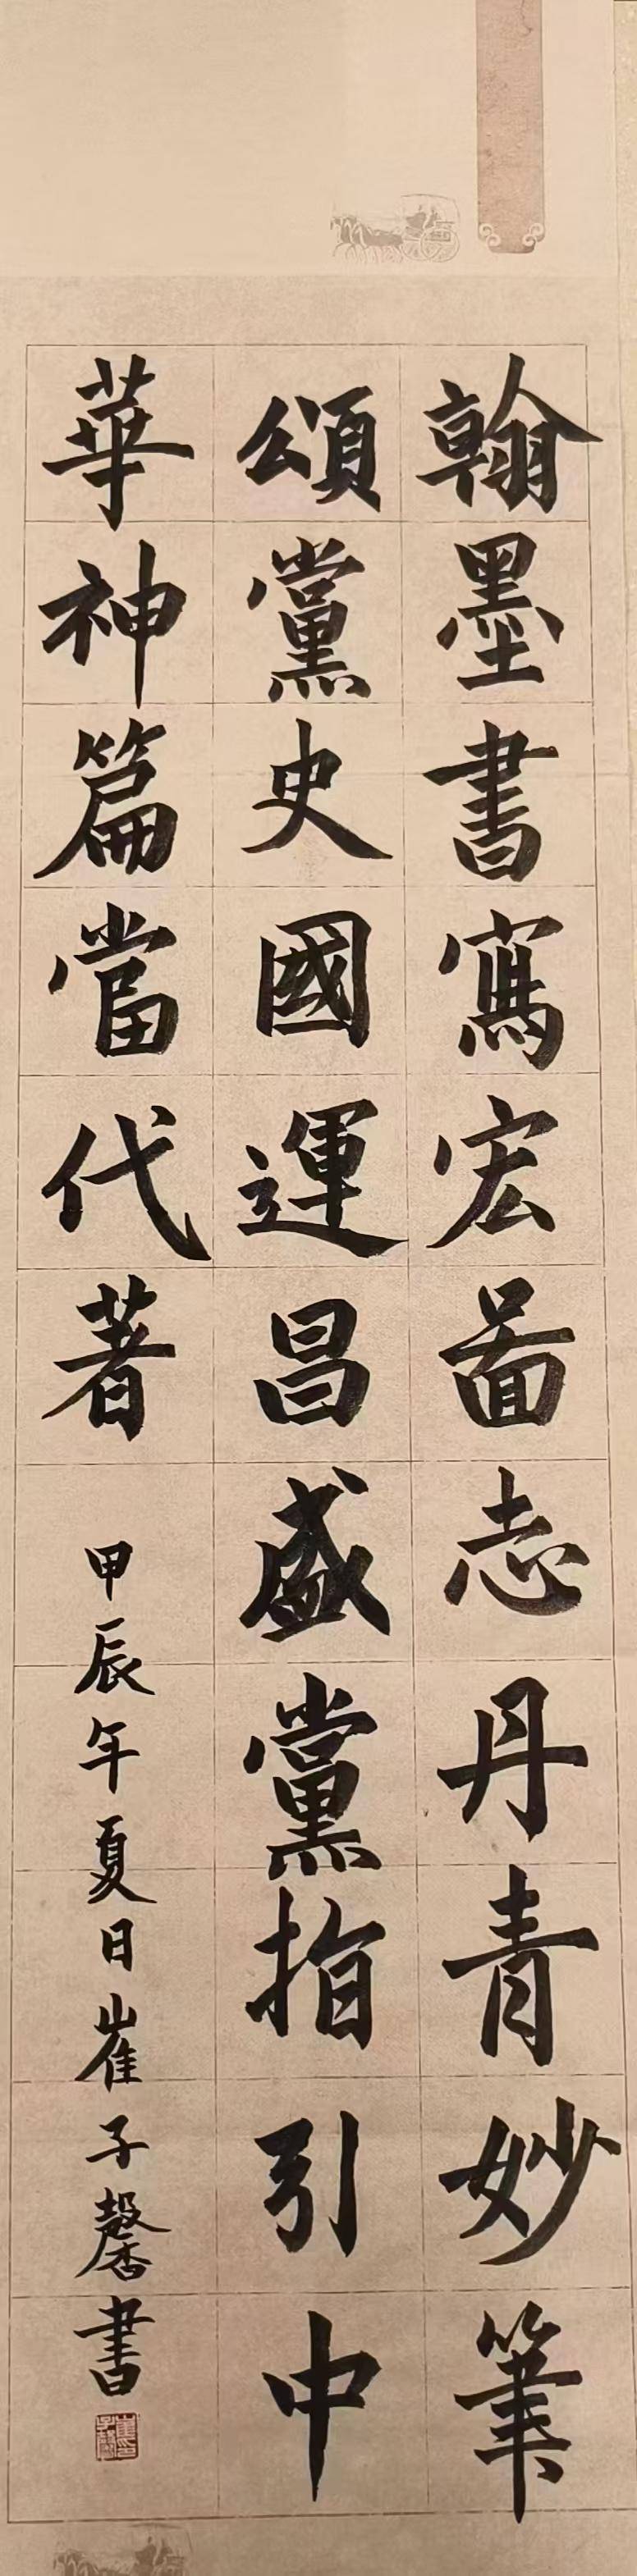 翰墨書寫宏啚志丹青妙筆
頌黨史國運昌盛黨指引中
華神篇當代著
甲辰年夏日崔子馨書